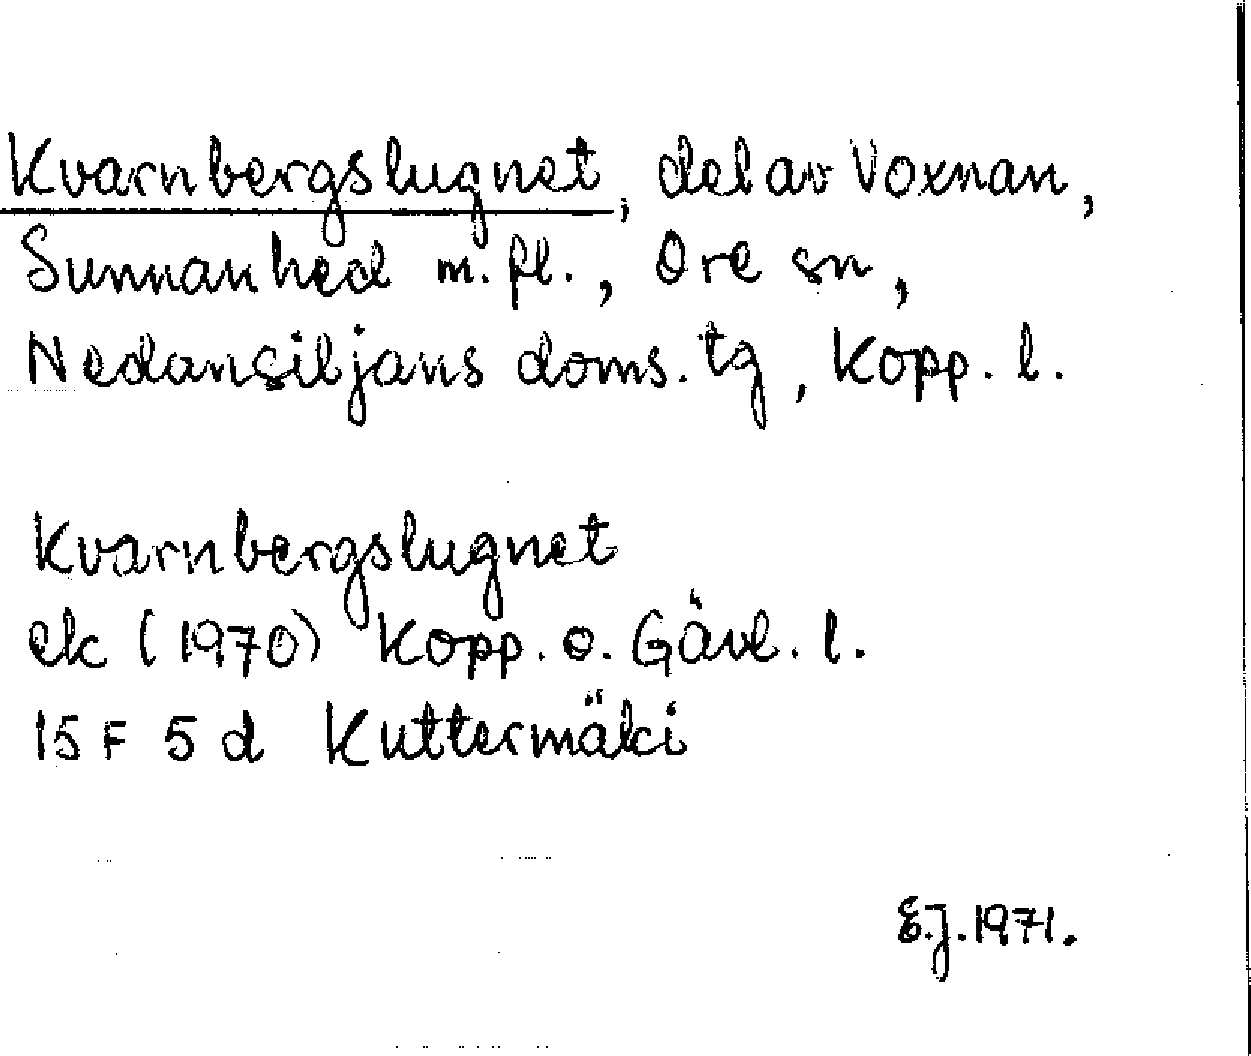 Kvarnbergslugnet, del av Voxnan,
Sunnanhed m.fl., Ore sn,
Nedansiljans doms.tg, Kopp. l.
Kvarnbergslugnet
ek (1970) Kopp. o. Gävl. l.
15 F 5 d Kuttermäki
E.J. 1971.